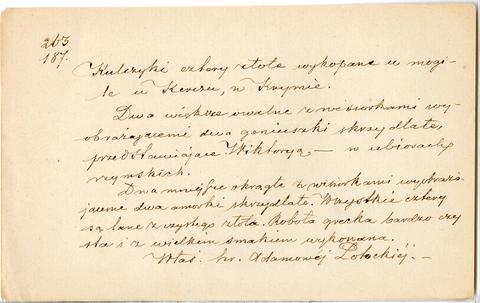 263
187.
Kulczyki cztery złote wykopane w mogi-
le w Kerczu, w Krymie.
Dwa większe owalne z wisiorkami wy-
obrażającemi dwa geniuszki skrzydlate,
przedstawiające Wiktoryą — w ubiorach
rzymskich.
Dwa mniejsze okrągłe z wisiorkami wyobraża-
jącemi dwa amorki skrzydlate. Wszystkie cztery
są lane z czystego złota. Robota grecka bardzo czy-
sta i z wielkiem smakiem wykonana.
Włas. hr. Adamowéj Potockiéj. —